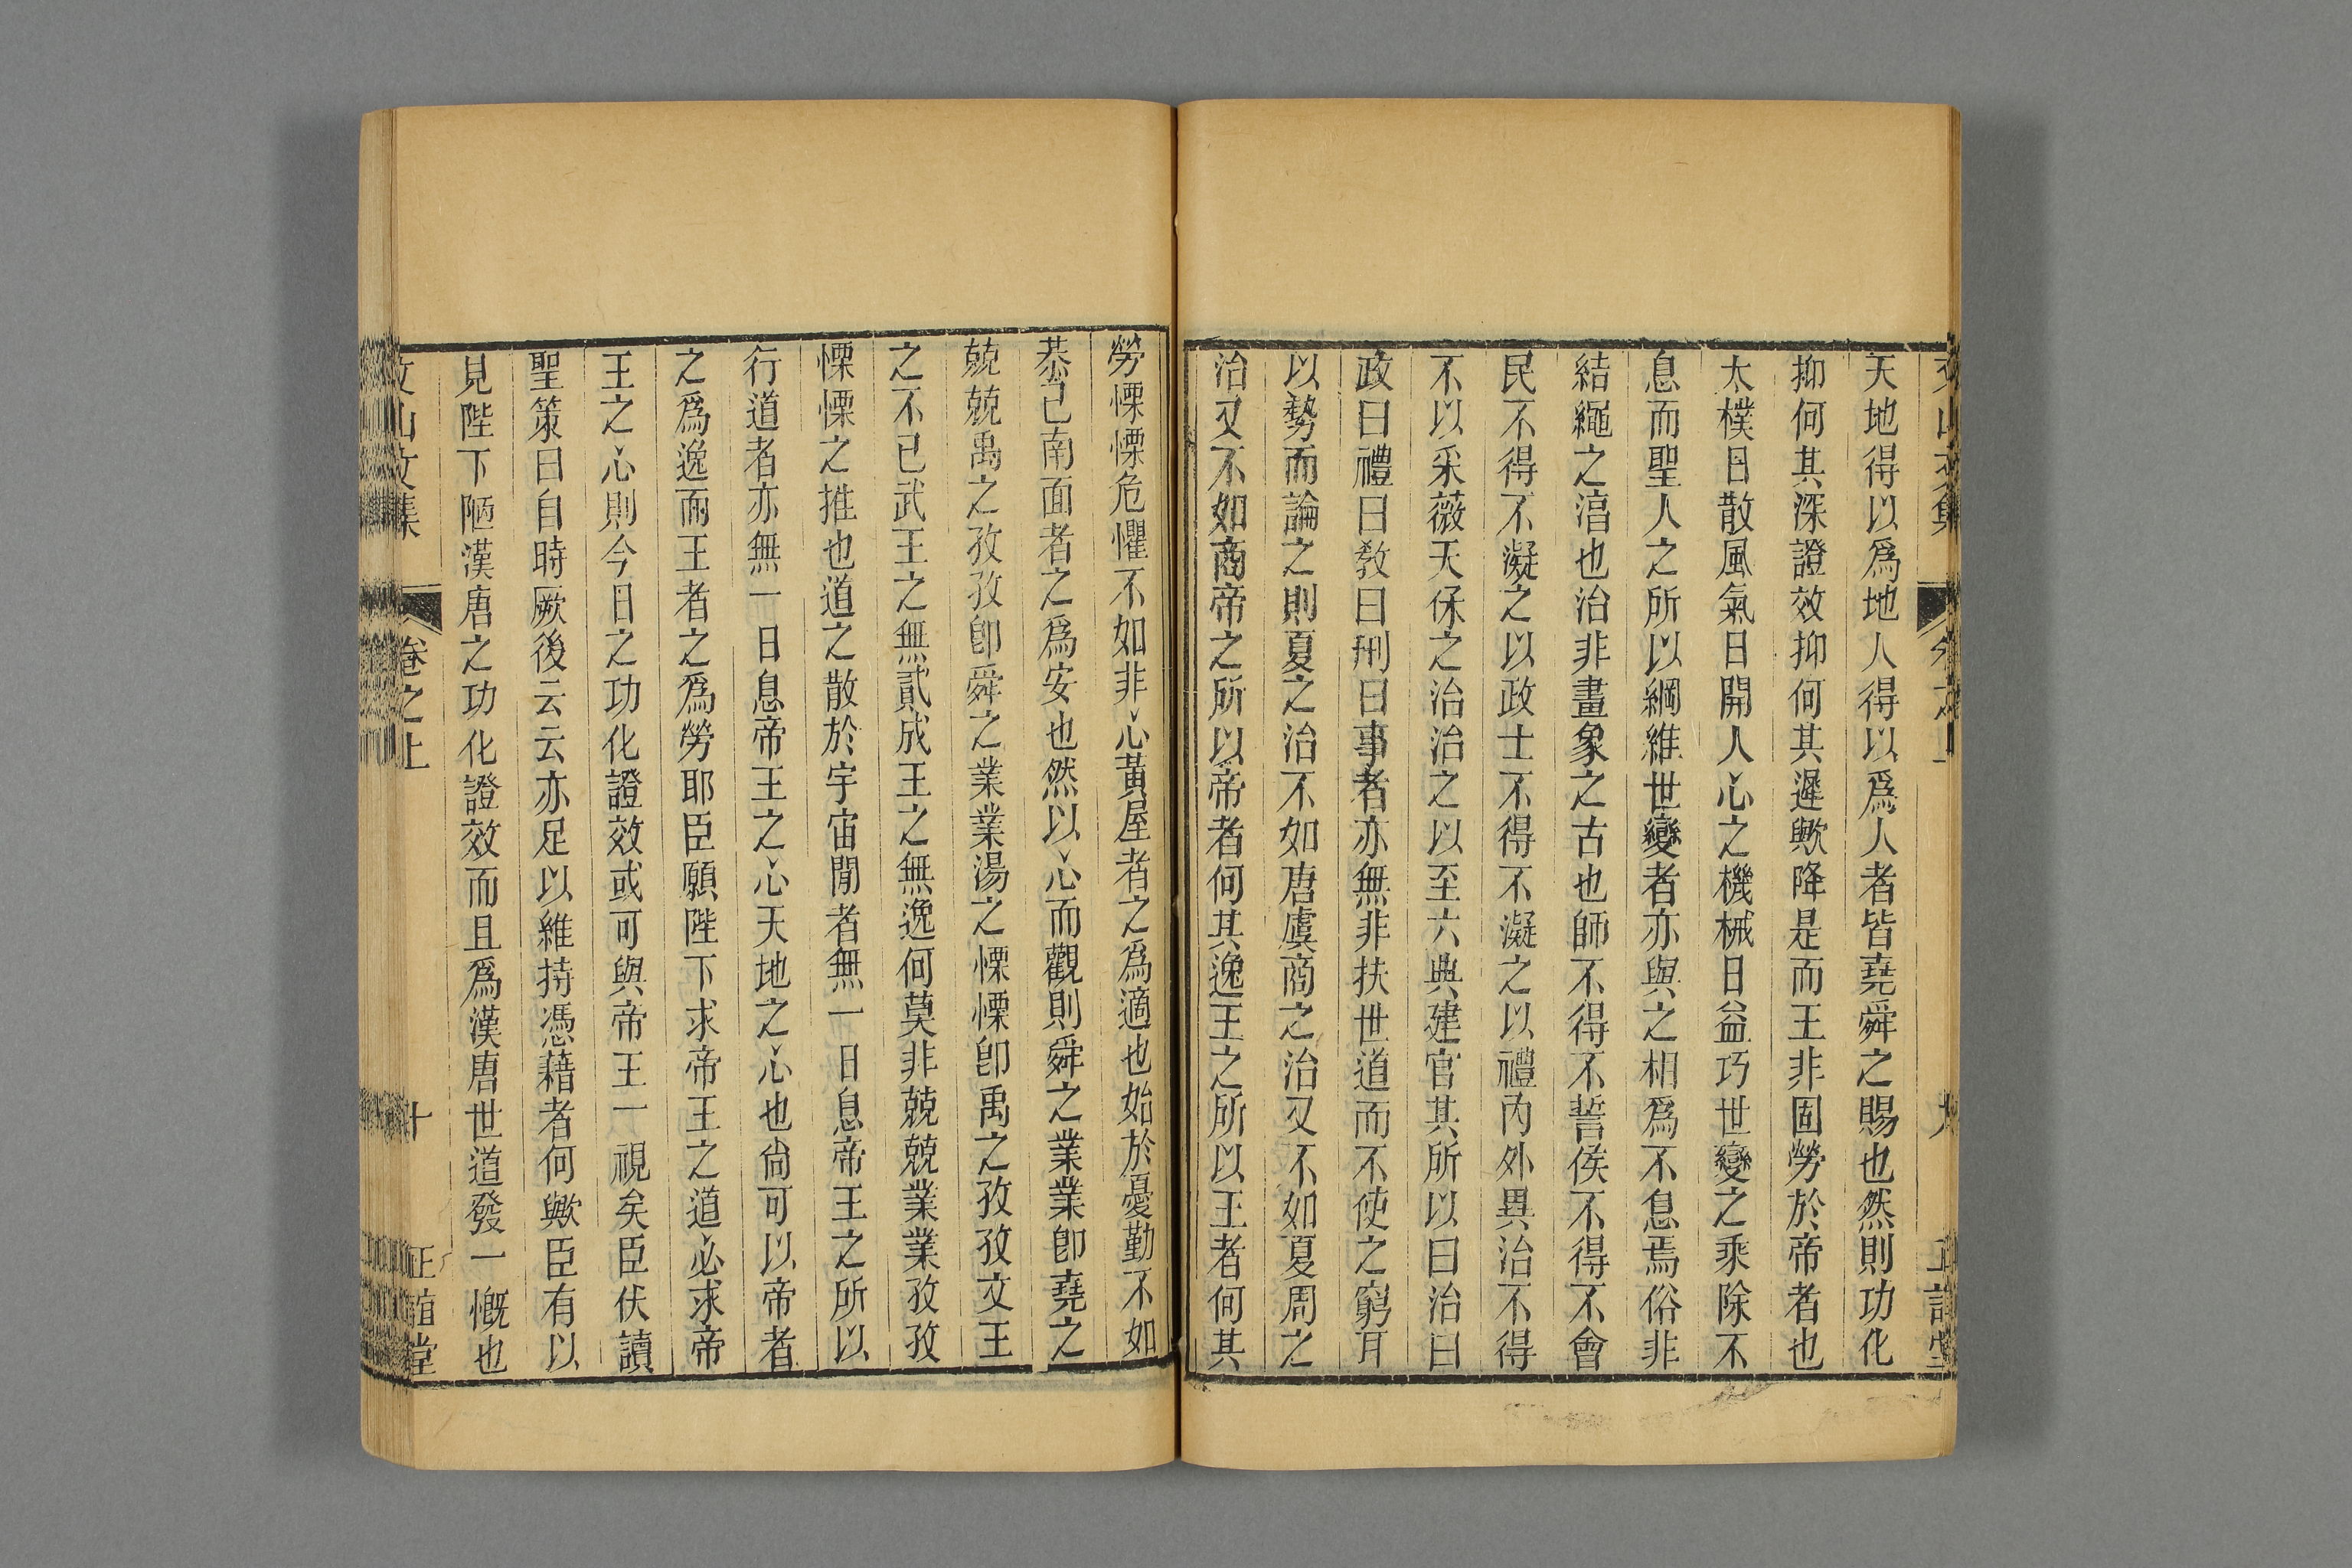 天地得以爲地人得以爲人者皆堯舜之賜也然則功化
抑何其深證效抑何其遲歟降是而王非固勞於帝者也
太樸日散風氣日開人心之機械日益巧世變之乘除不
息而聖人之所以綱維世變者亦與之相爲不息焉俗非
結繩之淳也治非畫象之古也師不得不誓侯不得不會
民不得不凝之以政士不得不凝之以禮內外異治不得
不以采薇天保之治治之以至六典建官其所以曰治曰
政曰禮曰敎曰刑曰事者亦無非扶世道而不使之窮耳
以勢而論之則夏之治不如唐虞商之治又不如夏周之
治又不如商帝之所以帝者何其逸王之所以王者何其
勞慄慄危懼不如非心黃屋者之爲適也始於憂勤不如
恭己南面者之爲安也然以心而觀則舜之業業卽堯之
兢兢禹之孜孜卽舜之業業湯之慄慄卽禹之孜孜文王
之不已武王之無貳成王之無逸何莫非兢兢業業孜孜
慄慄之推也道之散於宇宙閒者無一日息帝王之所以
行道者亦無一日息帝王之心天地之心也尙可以帝者
之爲逸而王者之爲勞耶臣願陛下求帝王之道必求帝
王之心則今日之功化證效或可與帝王一視矣臣伏讀
聖策曰自時厥後云云亦足以維持憑藉者何歟臣有以
見陛下陋漢唐之功化證效而且爲漢唐世道發一慨也
文山文集 卷之上 十 正誼堂